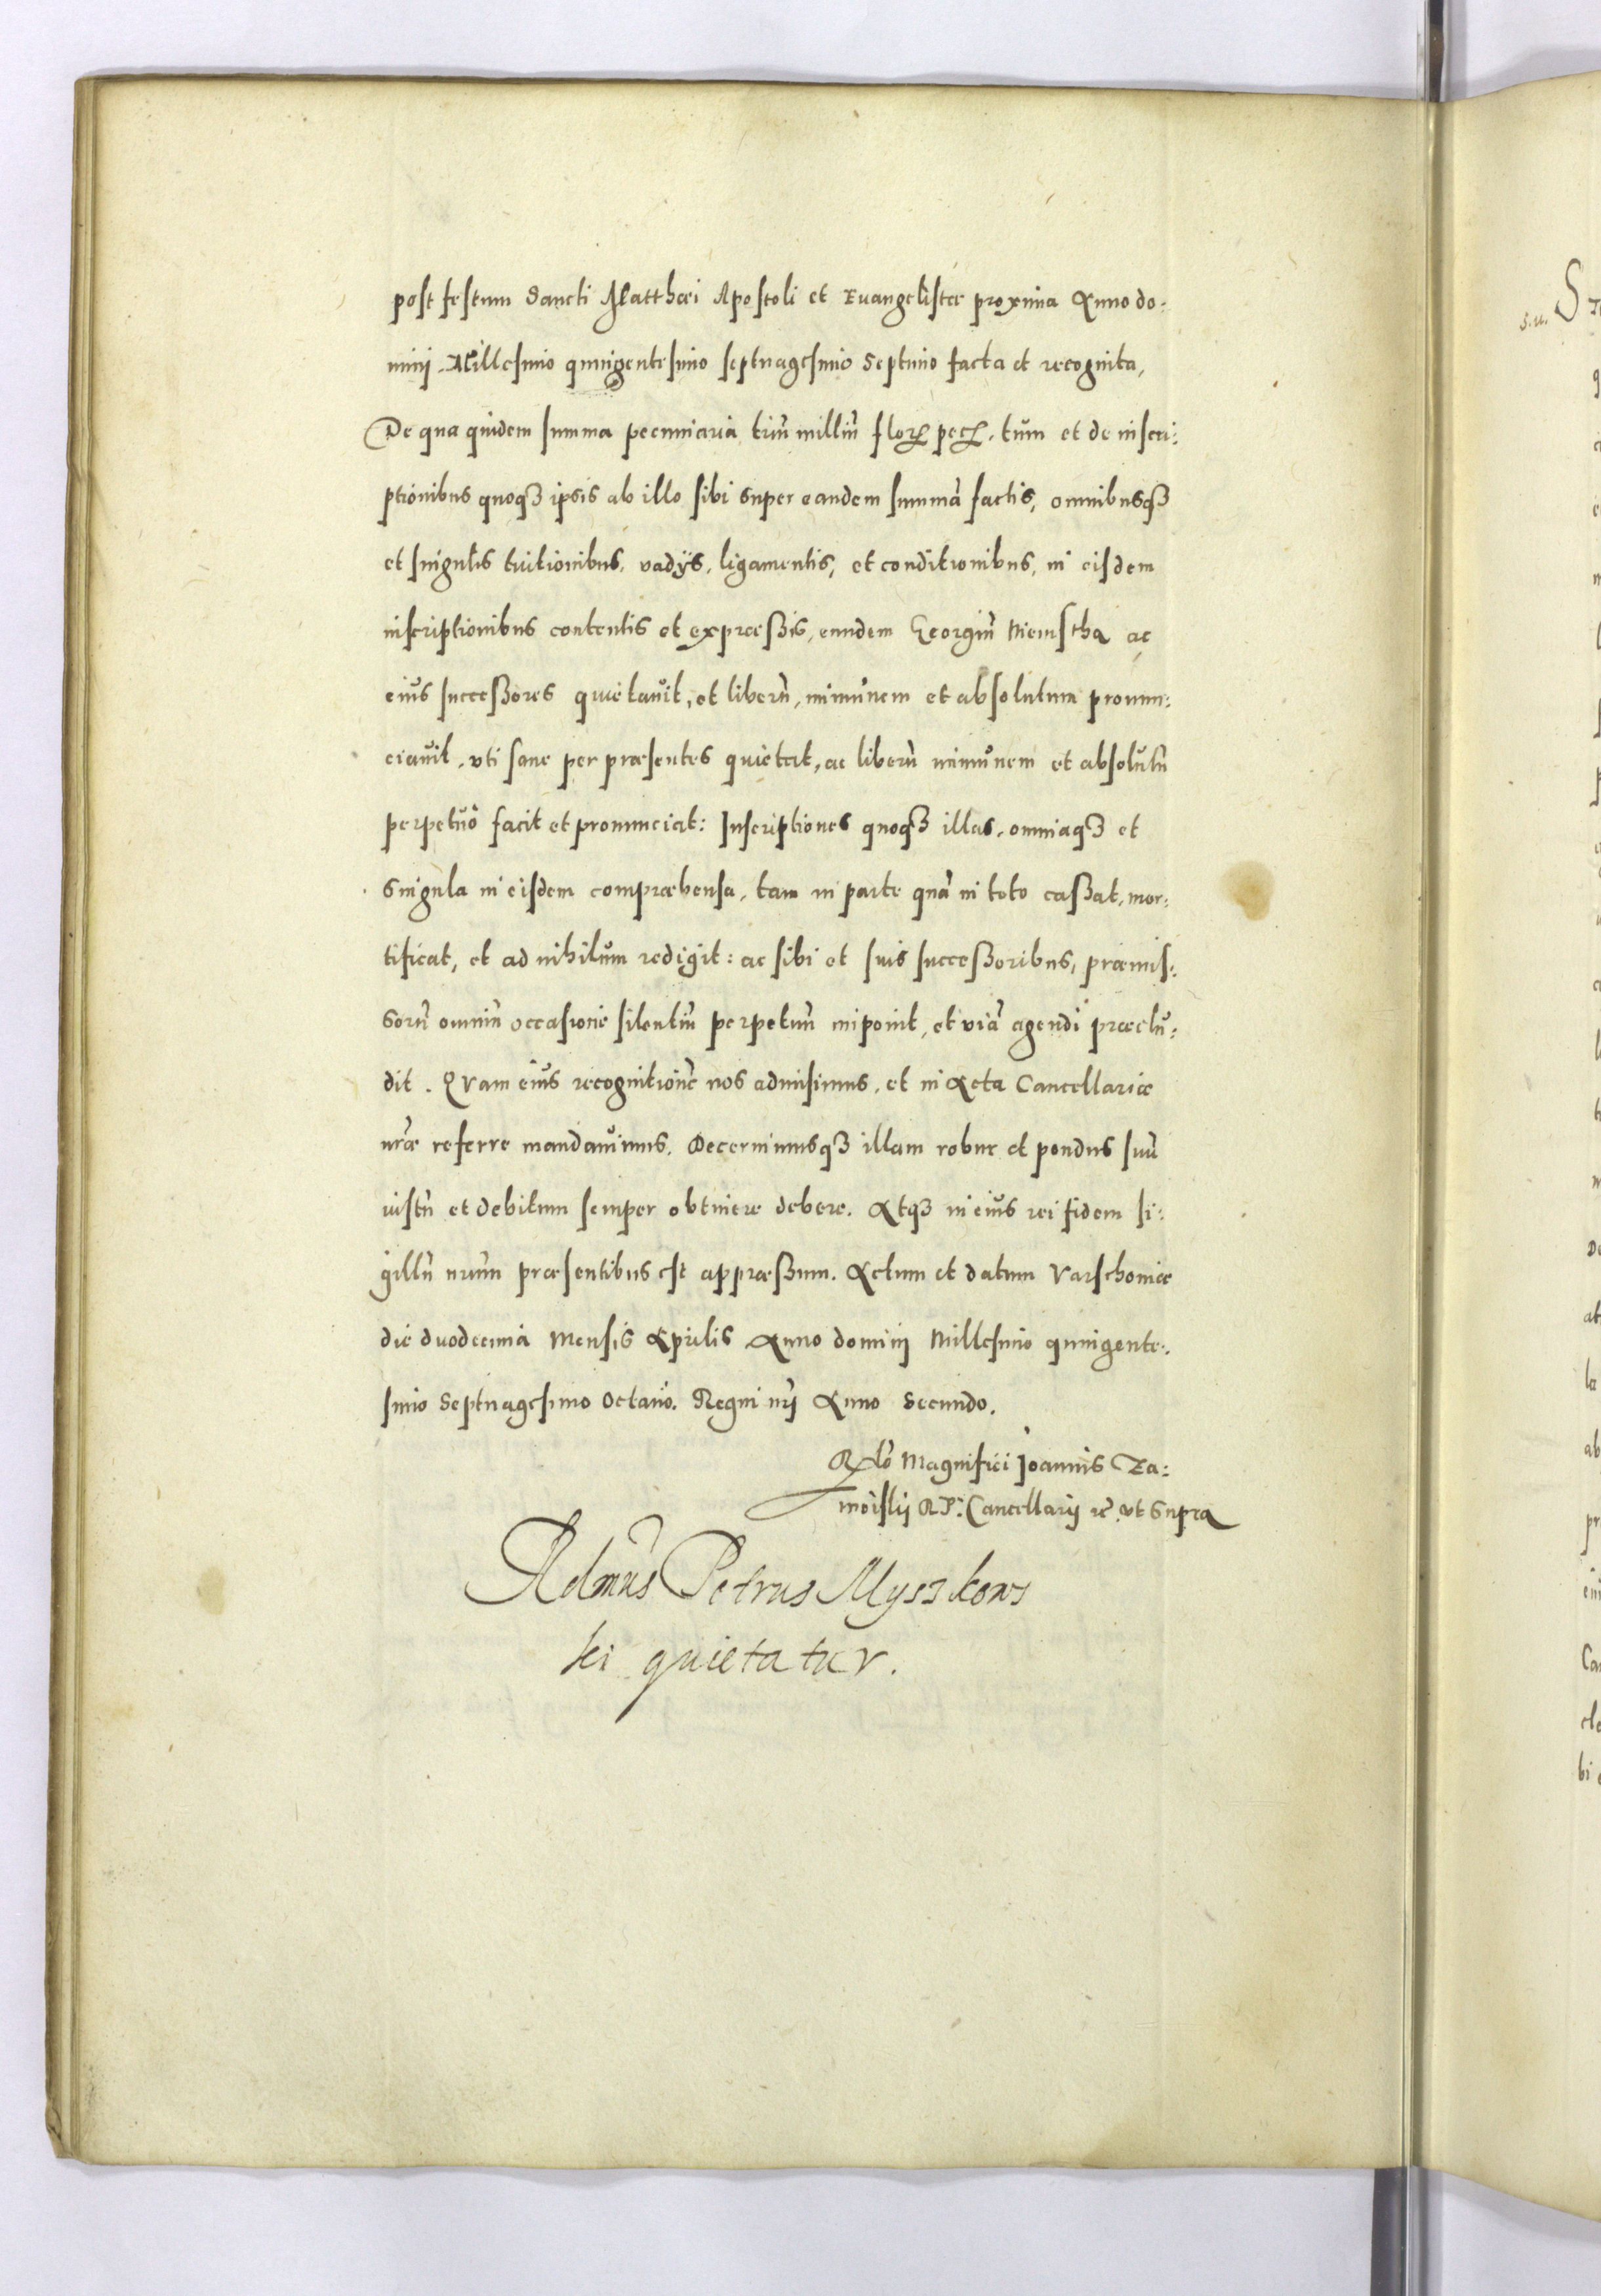 post festum Sancti Matthæi Apostoli et Euangelistæ proxima Anno do:
minij Millesimo quingentesimo septuagesimo Septimo facta et recognita,
De qua quidem summa pecuniaria triũ milliũ florꝝ pecꝝ. tum et de inscri:
ptionibus quoqꝫ ipsis ab illo sibi super eandem summã factis, omnibusqꝫ
et singulis tuitionibus, vadijs, ligamentis, et conditionibus, in eisdem
inscriptionibus contentis et expræßis, eundem Georgiũ Niemstha ac
eius succeßores quietauit, et liberũ, immunem et absolutum pronun:
ciauit, vti sane per præsentes quietat, ac liberũ immunem et absolutũ
perpetuò facit et pronunciat: Inscriptiones quoqꝫ illas, omniaqꝫ et
singula in eisdem compræhensa, tam in parte quã in toto caßat, mor:
tificat, et ad nihilum redigit: ac sibi et suis succeßoribus, præmis:
sorũ omniũ occasione silentiũ perpetuũ imponit, et viã agendi præclu:
dit. Quam eius recognitionẽ nos admisimus, et in Acta Cancellariæ
nr̃æ referre mandauimus. Decernimusqꝫ illam robur et pondus suũ
iustũ et debitum semper obtinere debere. Atqꝫ in eius rei fidem si:
gillũ nr̃um præsentibus est appræßum. Actum et datum Varschouiæ
die duodecima Mensis Aprilis Anno dominj Millesimo quingente:
simo Septuagesimo Octauo. Regni nr̃j Anno Secundo.
Rlo Magnifici Ioannis Za:
moislij R P: Cancellarij rc̃. vt Supra
Rdmus Petrus Mysskows
ki quietatur.